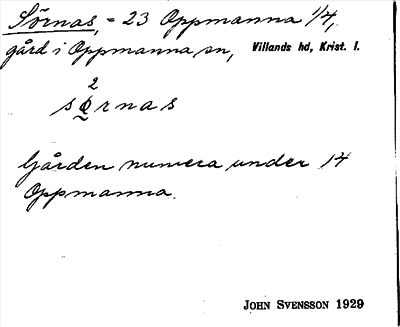 Sörnas, = 23 Oppmanna 1/4,
gård i Oppmanna sn, Villands hd, Krist. l.
2
sørnas
Gården numera under 14
Oppmanna.
JOHN SVENSSON 1929